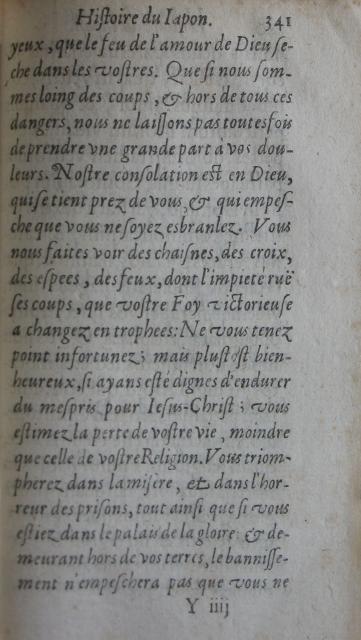 Histoire du Iapon. 341
yeux, que le feu de l'amour de Dieu se-
che dans les vostres. Que si nous som-
mes loing des coups, & hors de tous ces
dangers, nous ne laissons pas toutesfois
de prendre vne grande part à vos dou-
leurs. Nostre consolation est en Dieu,
qui se tient prez de vous, & qui empes-
che que vous ne soyez esbranlez. Vous
nous faites voir des chaisnes, des croix,
des espees, des feux, dont l'impieté ruë
ses coups, que vostre Foy victorieuse
a changez en trophees: Ne vous tenez
point infortunez; mais plustost bien-
heureux, si ayans esté dignes d'endurer
du mespris pour Iesus-Christ; vous
estimez la perte de vostre vie, moindre
que celle de vostre Religion. Vous triom-
pherez dans la misere, et dans l'hor-
reur des prisons, tout ainsi que si vous
estiez dans le palais de la gloire: & de-
meurant hors de vos terres, le bannisse-
ment n'empeschera pas que vous ne
Y iiij